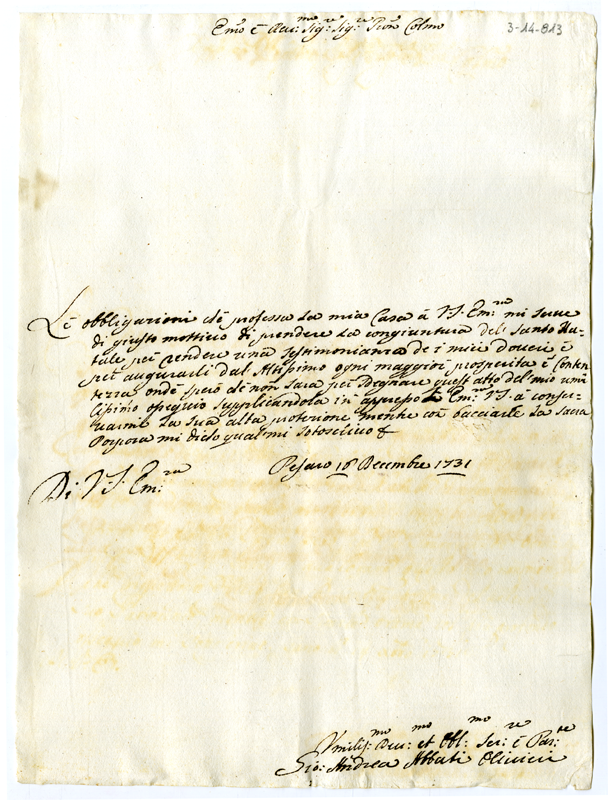 Em.o è Reu:mo Sig:re Sig:re Pron Colmo
3-14-813
Lè obbligazioni chè professa La mia Casa à V:S: Em:ma mi serue
di giusto mottiuo di prendere La congiuntura del Santo Na-
tale per rendere una testimonianza de i miei doueri è
per augurarli dal Altissimo ogni maggior prosperità è Conten
tezza ondè sperò chè non sarà per sdegnare quest atto del mio umi
lissimo ossequio supplicandola in appresso Em:ma V:S: à conser-
uarmi La sua alta protezione mentre con bacciarle La Sacra
Porpora mi dichò qual mi sotoscriuo &
Di V:S: Em:ma
Pesaro 18 Decembre 1731
Vmilis:mo Deu:mo et Obl:mo Ser:re è Par:te
Gio: Andrea Abbati Oliuieri